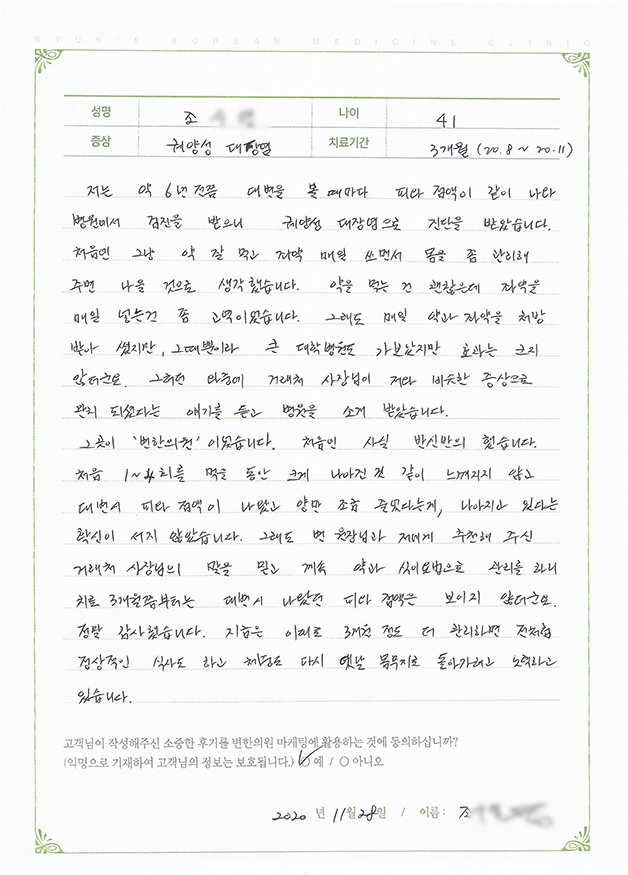 BYUN'S KOREAN MEDICINE CLINIC
성명 조 나이 41
증상 궤양성 대장염 치료기간 3개월 (20.8 ~ 20.11)
저는 약 6년 전쯤 대변을 볼 때마다 피와 점액이 같이 나와
병원에서 검진을 받으니 궤양성 대장염으로 진단을 받았습니다.
처음엔 그냥 약 잘 먹고 좌약 매일 쓰면서 몸을 좀 관리해
주면 나을 것으로 생각 했습니다. 약을 먹는 건 괜찮은데 좌약을
매일 넣는건 좀 고역이었습니다. 그래도 매일 약과 좌약을 처방
받아 썼지만, 그때뿐이라 큰 대학병원도 가보았지만 효과는 크지
않더군요. 그러던 와중에 거래처 사장님이 저와 비슷한 증상으로
완치 되셨다는 얘기를 듣고 병원을 소개 받았습니다.
그곳이 '변한의원' 이었습니다. 처음엔 사실 반신반의 했습니다.
처음 1~4회를 먹을 동안 크게 나아진 것 같이 느껴지지 않고
대변시 피와 점액이 나왔고 양만 조금 줄었다는게, 나아지고 있다는
확신이 서지 않았습니다. 그래도 변 원장님과 저에게 추천해 주신
거래처 사장님의 말을 믿고 계속 약과 식이요법으로 관리를 하니
치료 3개월쯤부터는 대변시 나왔던 피와 점액은 보이지 않더군요.
정말 감사했습니다. 지금은 이대로 3개월 정도 더 관리하면 전처럼
정상적인 식사도 하고 체중도 다시 옛날 몸무게로 돌아가려고 노력하고
있습니다.
고객님이 작성해주신 소중한 후기를 변한의원 마케팅에 활용하는 것에 동의하십니까?
(익명으로 기재하여 고객님의 정보는 보호됩니다.) ○ 예 / ○ 아니오
2020 년 11월 28일 / 이름 : 조